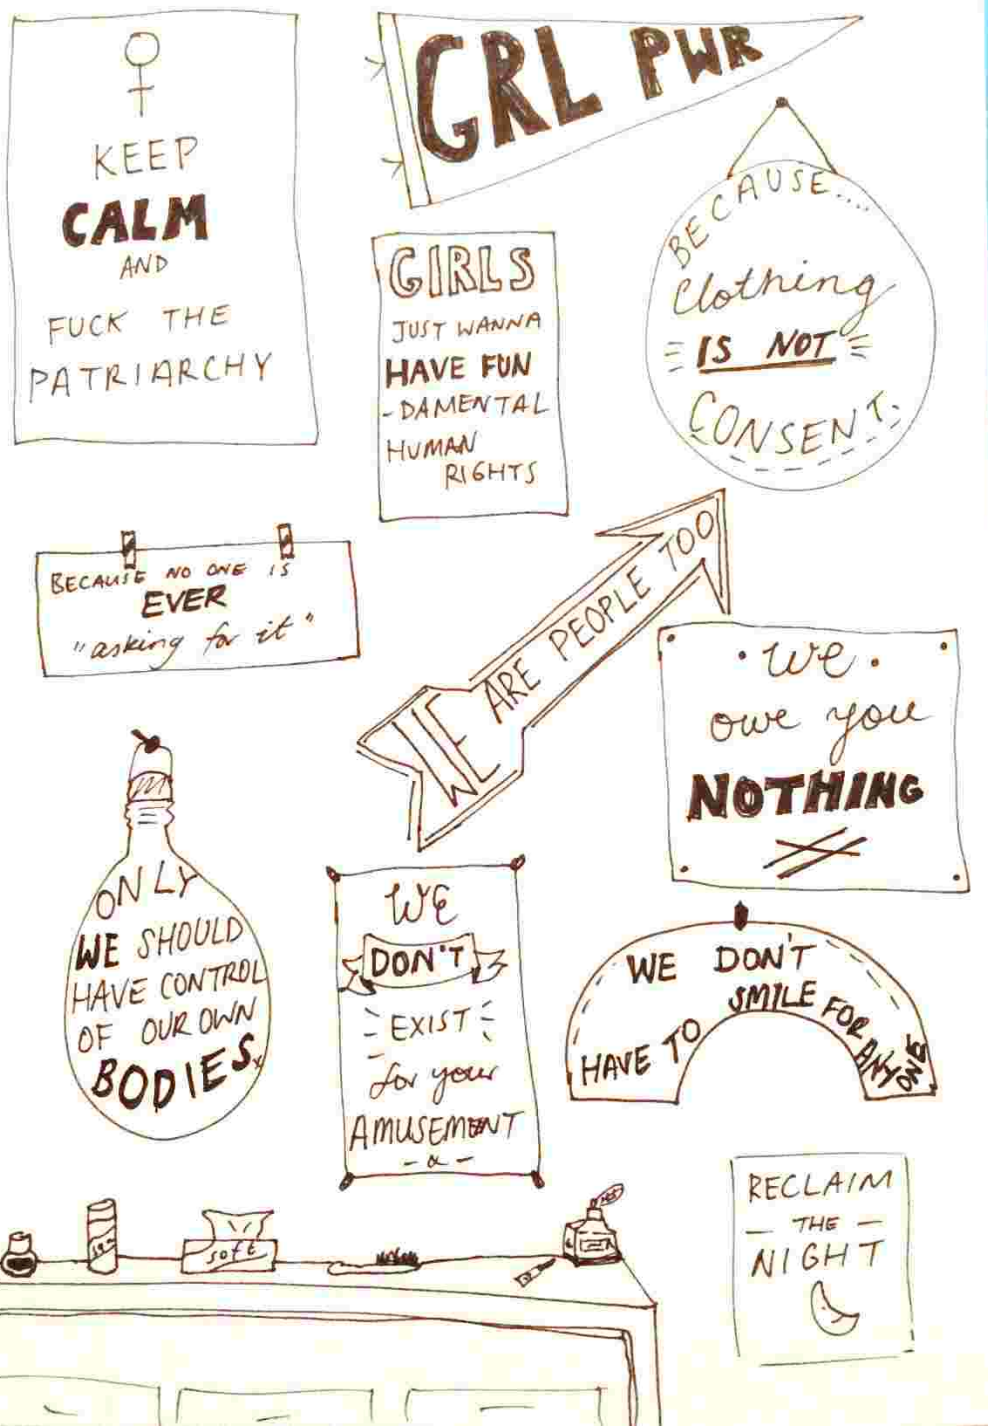 KEEP
CALM
AND
FUCK THE
PATRIARCHY
GRL PWR
GIRLS
JUST WANNA
HAVE FUN
-DAMENTAL
HUMAN
RIGHTS
BECAUSE....
Clothing
IS NOT
CONSENT.
BECAUSE NO ONE IS
EVER
"asking for it"
WE ARE PEOPLE TOO
We
owe you
NOTHING
ONLY
WE SHOULD
HAVE CONTROL
OF OUR OWN
BODIES.
WE
DON'T
EXIST
for your
AMUSEMENT
WE DON'T
HAVE TO SMILE FOR ANYONE
RECLAIM
THE
NIGHT
soft